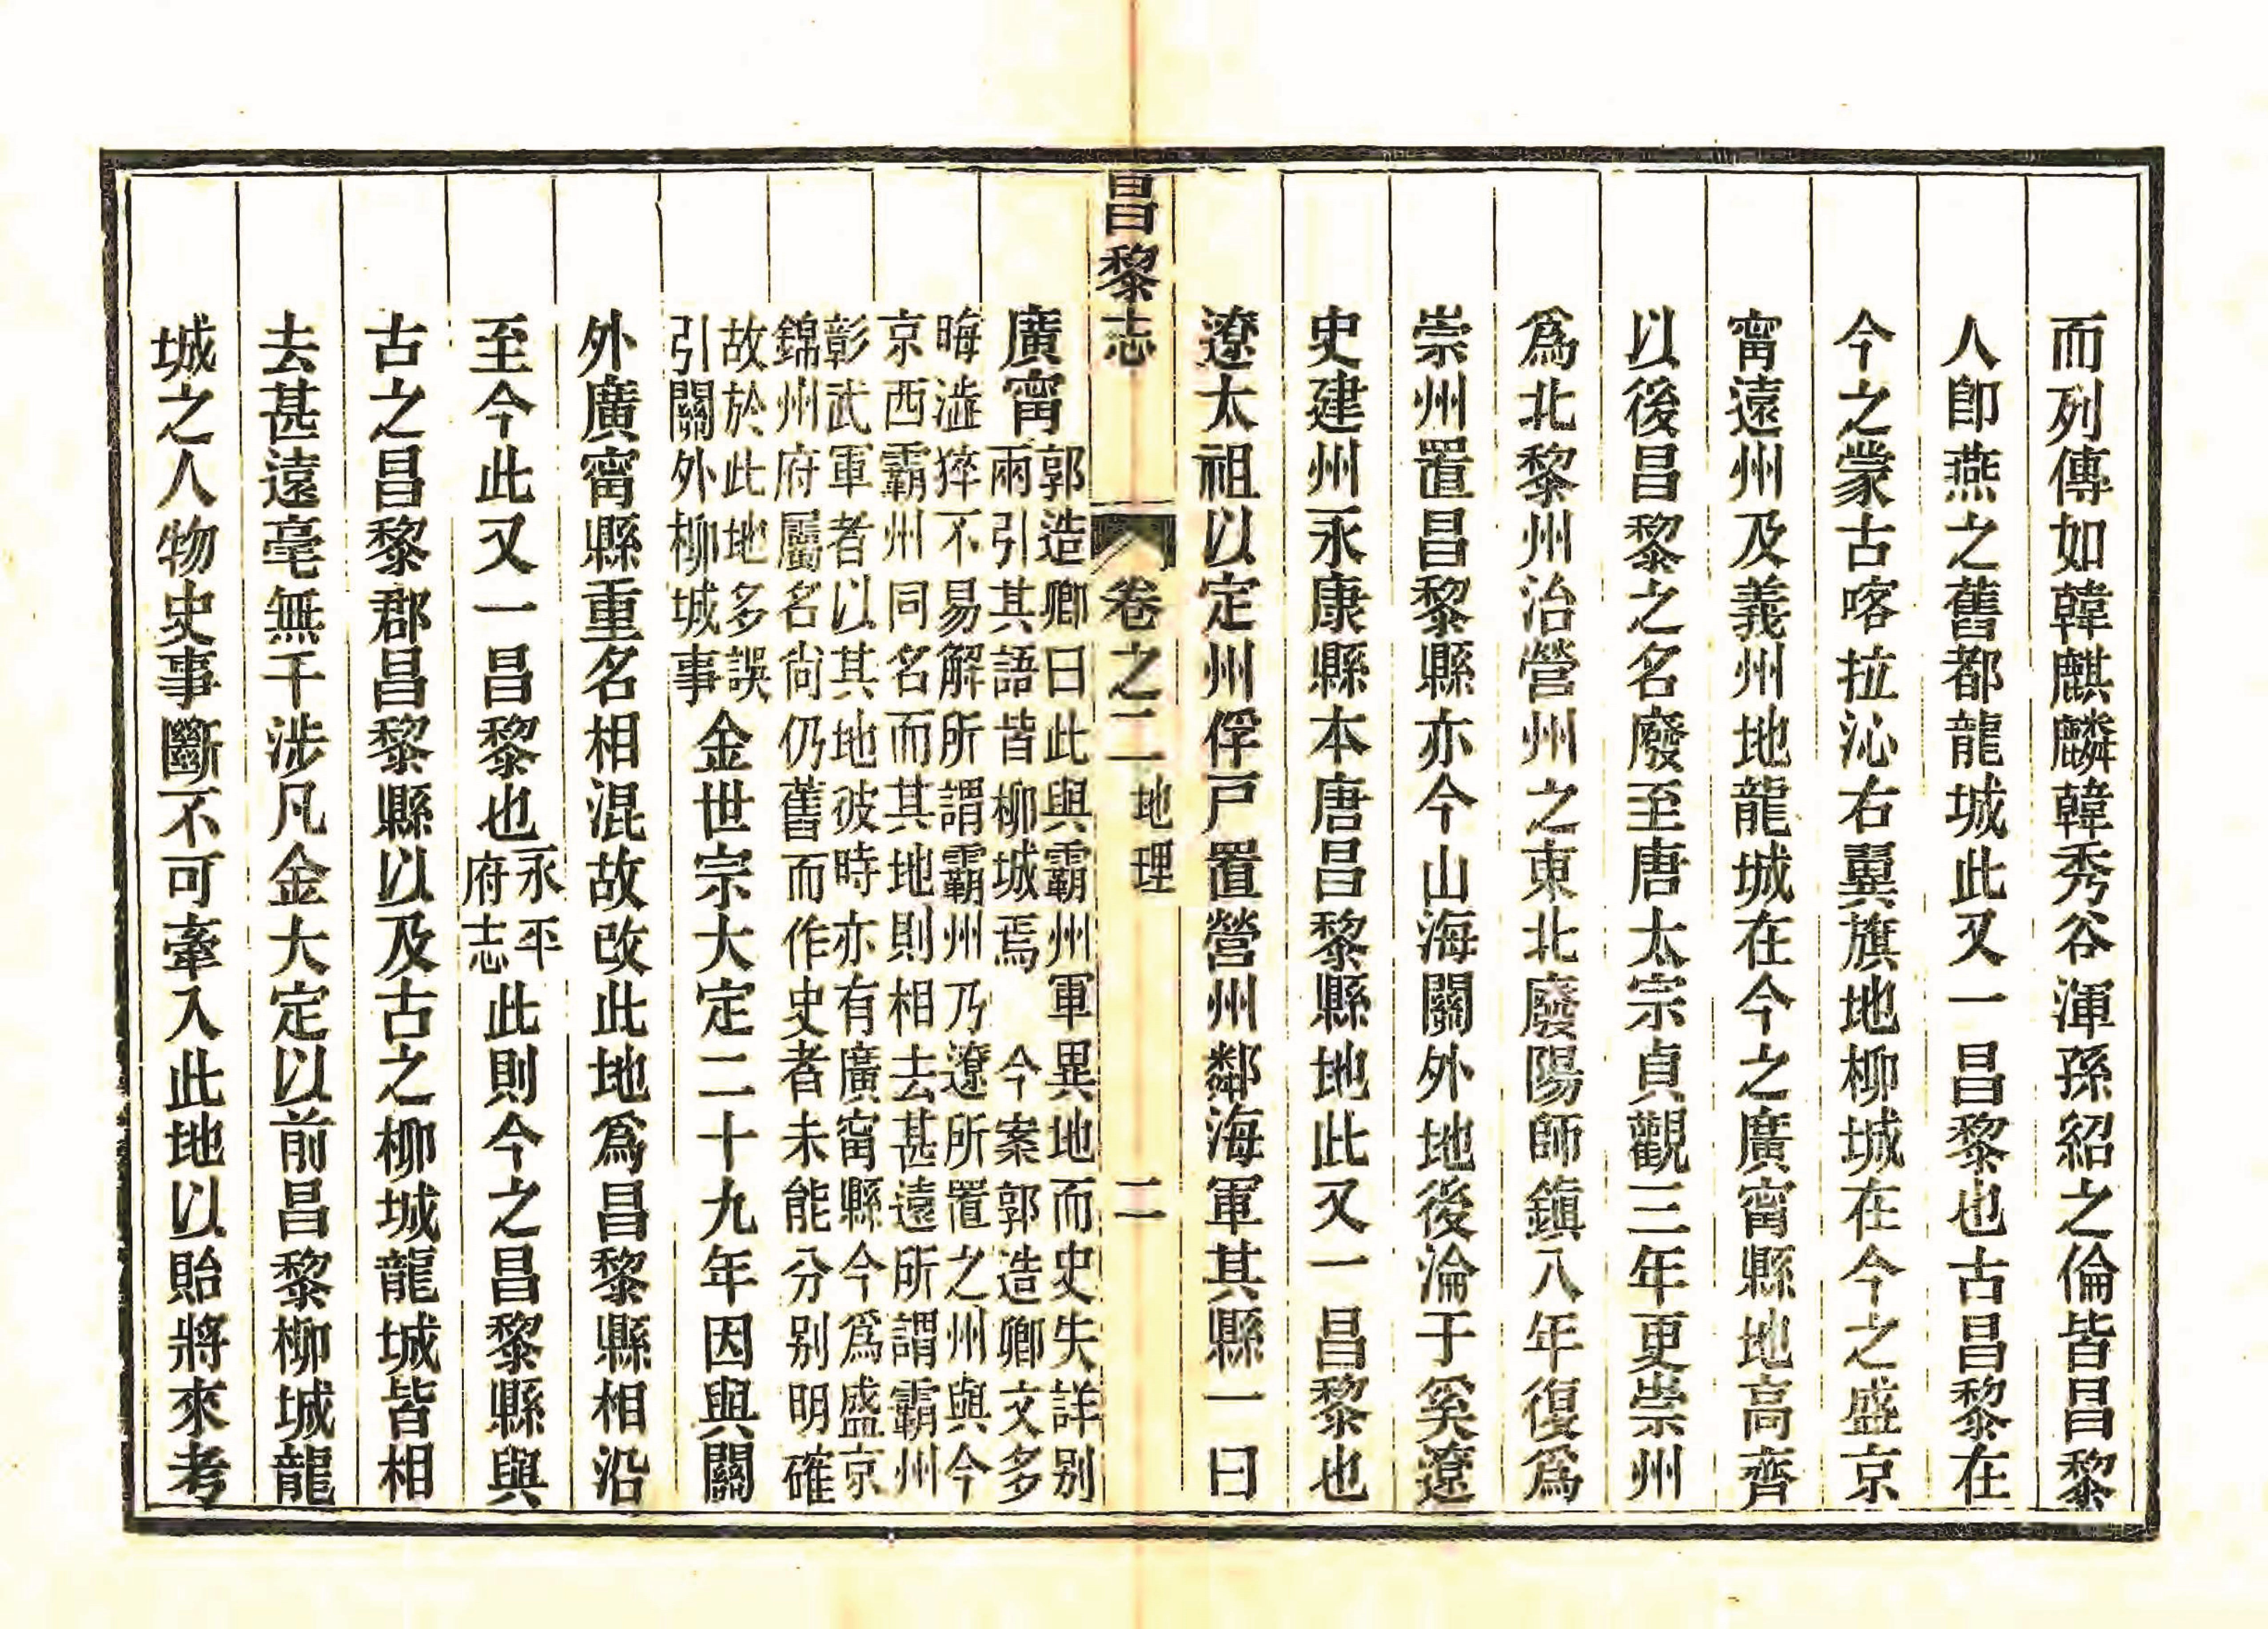 而列傳如韓麒麟韓秀谷渾孫紹之倫皆昌黎
人卽燕之舊都龍城此又一昌黎也古昌黎在
今之蒙古喀拉沁右翼旗地柳城在今之盛京
甯遠州及義州地龍城在今之廣甯縣地高齊
以後昌黎之名廢至唐太宗貞觀三年更崇州
爲北黎州治營州之東北廢陽師鎮八年復爲
崇州置昌黎縣亦今山海關外地後淪于奚遼
史建州永康縣本唐昌黎縣地此又一昌黎也
遼太祖以定州俘戸置營州鄰海軍其縣一曰
昌黎志 卷之二 地理 二
廣甯
郭造卿曰此與霸州軍異地而史失詳别
兩引其語皆柳城焉 今案郭造卿文多
晦澁猝不易解所謂霸州乃遼所置之州與今
京西霸州同名而其地則相去甚遠所謂霸州
彰武軍者以其地彼時亦有廣甯縣今爲盛京
錦州府屬名尙仍舊而作史者未能分别明確
故於此地多誤
引關外柳城事
金世宗大定二十九年因與關
外廣甯縣重名相混故改此地爲昌黎縣相沿
至今此又一昌黎也
永平
府志
此則今之昌黎縣與
古之昌黎郡昌黎縣以及古之柳城龍城皆相
去甚遠毫無干涉凡金大定以前昌黎柳城龍
城之人物史事斷不可牽入此地以貽將來考